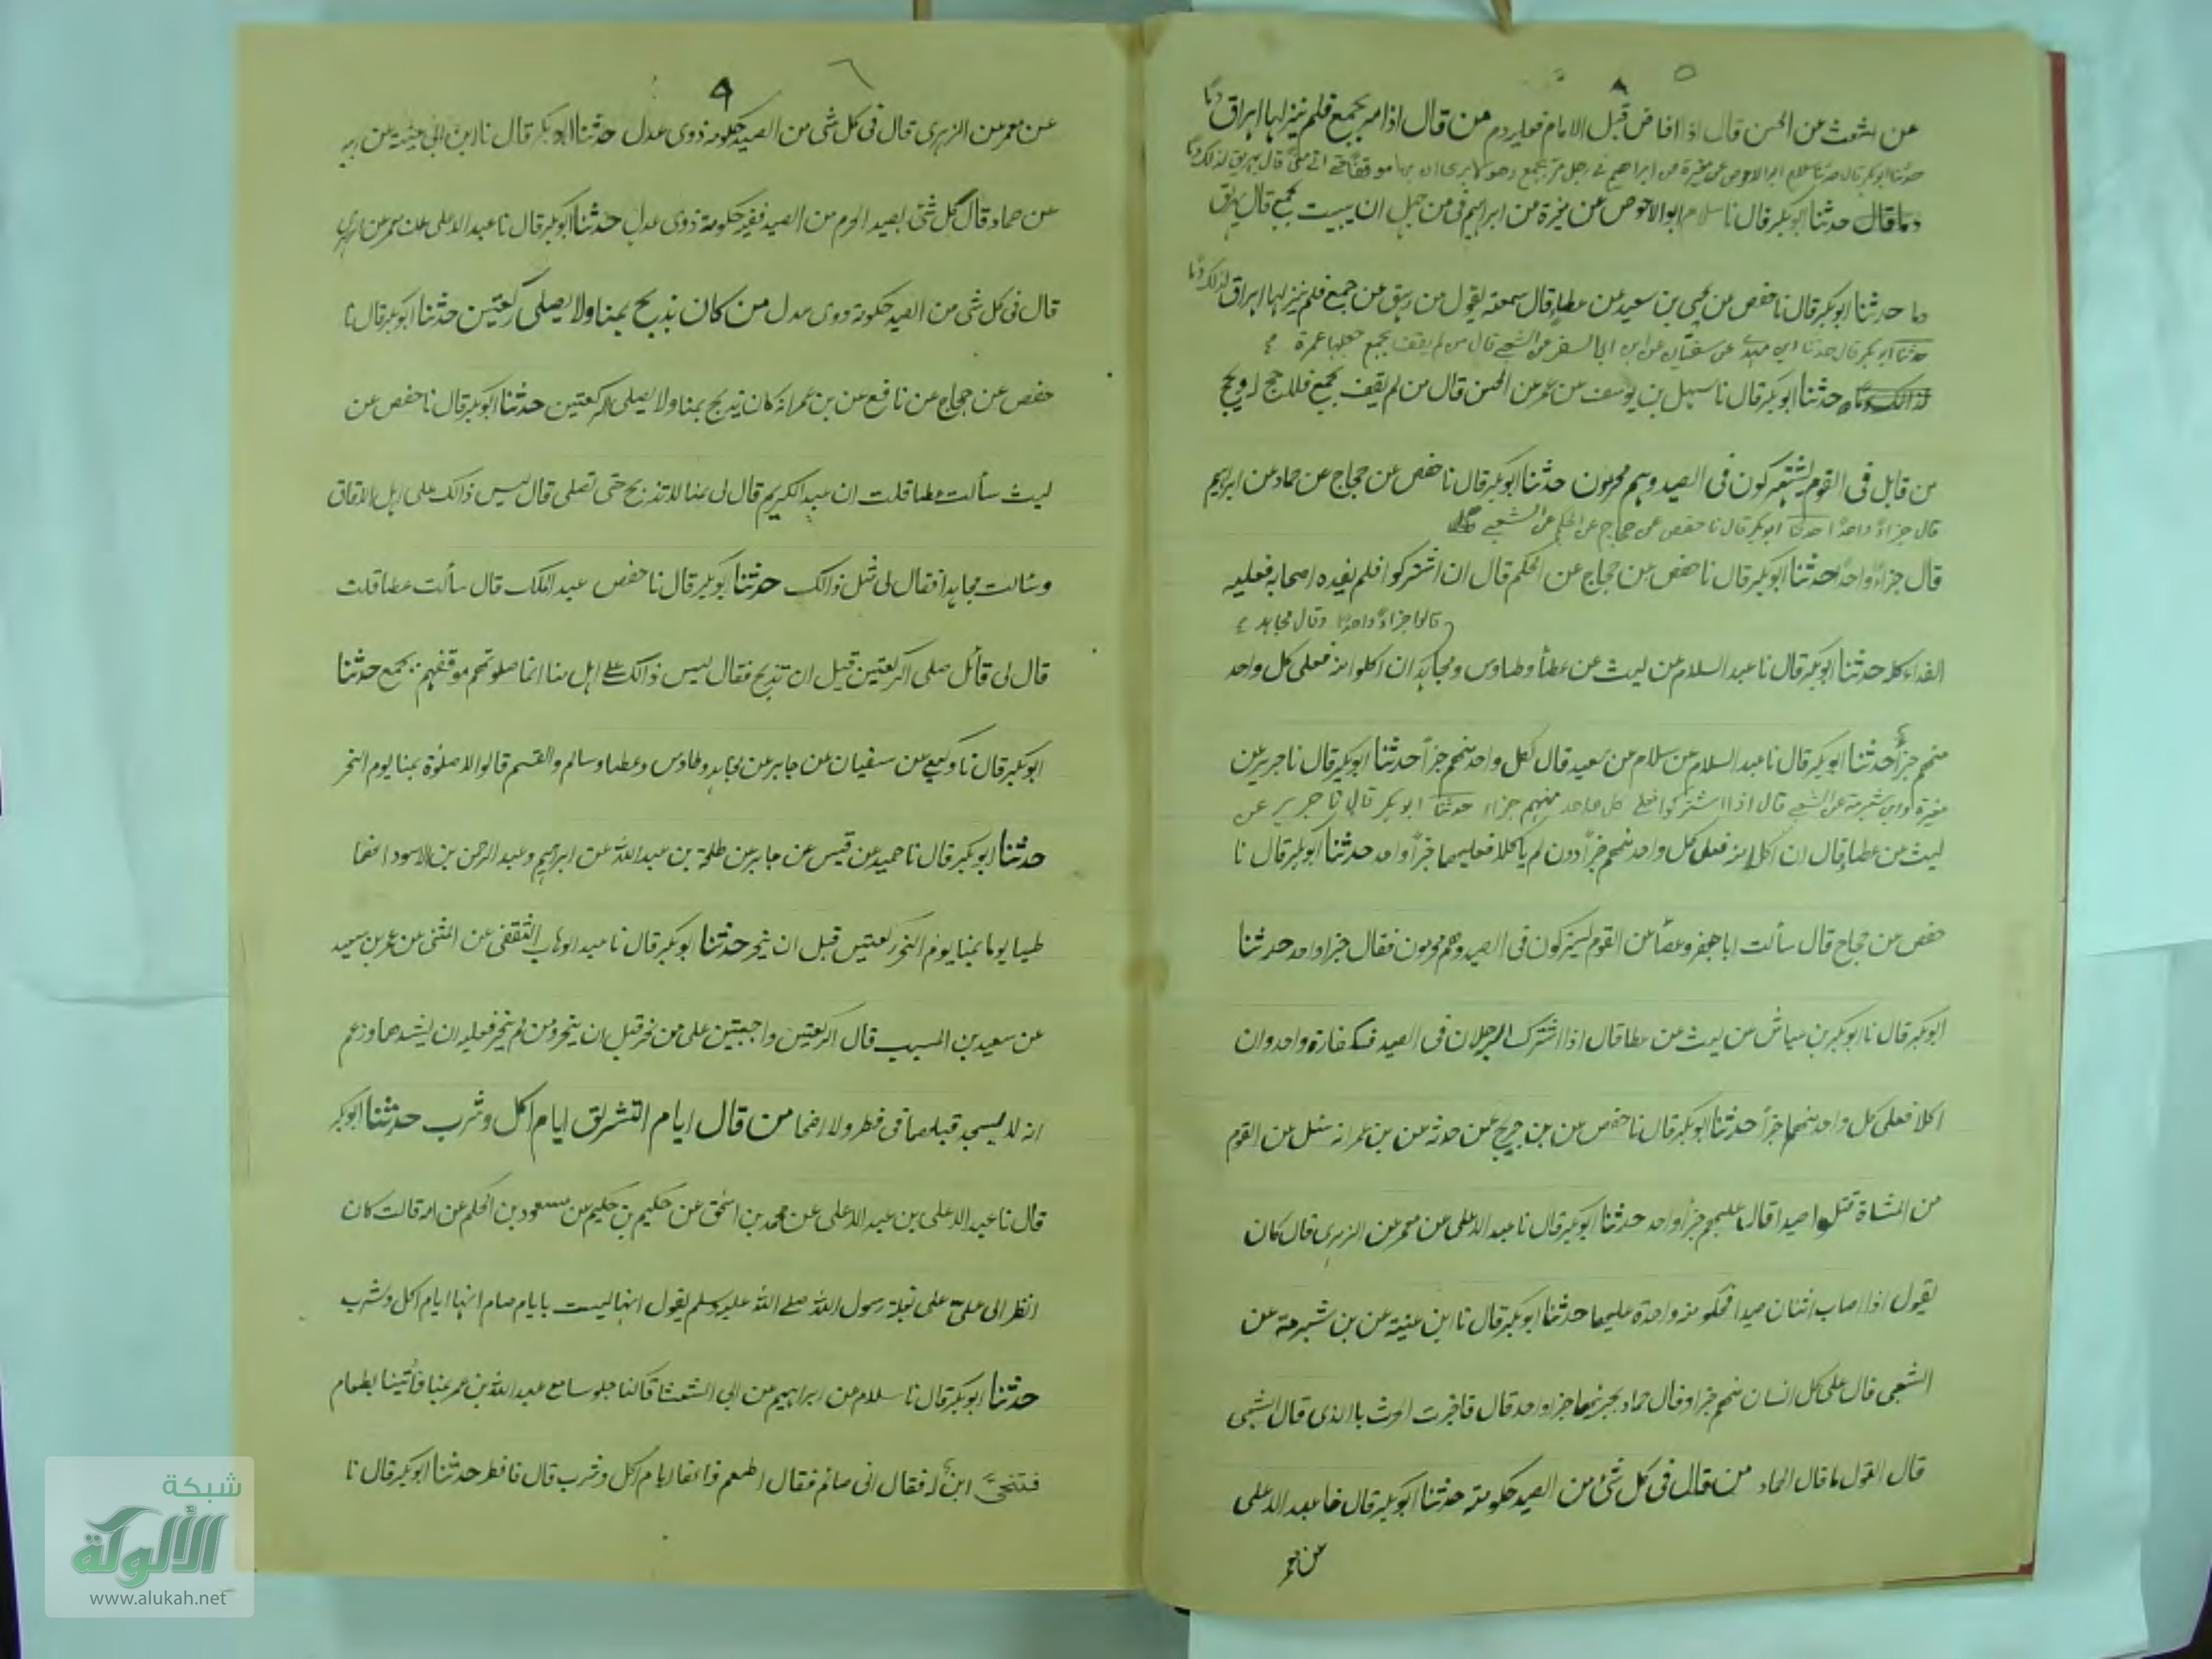 ٨ ٥
عن اشعث عن الحسن قال اذا افاض قبل الامام فعليه دم من قال اذا مر بجمع فلم ينزلها اهراق دما
حدثنا ابوبكر قال حدثنا سلام ابو الاحوص عن مغيرة عن ابراهيم في رجل مر بجمع وهو لا يرى ان بها موقفا حتى اتى منى قال يهريق لذلك دما
دما قال حدثنا ابوبكر قال نا سلام ابو الاحوص عن مغيرة عن ابراهيم فى من جهل ان يبيت بجمع قال يهريق
دما حدثنا ابوبكر قال نا حفص عن يحيى بن سعيد عن عطاء قال سمعته يقول من رهق عن جمع فلم ينزلها اهراق لذلك دما
حدثنا ابوبكر قال حدثنا ابن مهدي عن سفيان عن ابن ابى السفر عن الشعبي قال من لم يقف بجمع جعلها عمرة
حدثنا ابوبكر قال نا سهل بن يوسف عن عمر عن الحسن قال من لم يقف بجمع فلا حج له ويحج
من قابل فى القوم يشتركون فى الصيد وهم محرمون حدثنا ابوبكر قال نا حفص عن حجاج عن حماد عن ابراهيم
قال جزاءً واحدًا حدثنا ابوبكر قال نا حفص عن حجاج عن الحكم عن الشعبي
قال جزاءً واحدًا حدثنا ابوبكر قال نا حفص عن حجاج عن الحكم قال ان اشتركوا فلم يفده اصحابه فعليه
قالوا جزاءً واحدًا وقال مجاهد
الفداء كله حدثنا ابوبكر قال نا عبد السلام عن ليث عن عطأ وطاوس ومجاهد ان اكلوا منه فعلى كل واحد
منهم جزأ حدثنا ابوبكر قال نا عبد السلام عن سلام عن سعيد قال لكل واحد منهم جزأ حدثنا ابوبكر قال نا جرير عن
مغيرة وابن شبرمة عن الشعبي قال اذا اشتركوا فعلى كل واحد منهم جزاء حدثنا ابوبكر قال نا جرير عن
ليث عن عطاء قال ان اكلا منه فعلى كل واحد منهم جزأ دون لم ياكلا فعليهما جزأ واحد حدثنا ابوبكر قال نا
حفص عن حجاج قال سألت اباجعفر وعطأ عن القوم يشركون فى الصيد وهم محرمون فقال جزا واحد حدثنا
ابوبكر قال نا ابوبكر بن عياش عن ليث عن عطا قال اذا اشترك الرجلان فى الصيد فكفارة واحد وان
اكلا فعلى كل واحد منهما جزأ حدثنا ابوبكر قال نا حفص عن بن جريج عمن حدثه عن بن عمر انه سئل عن القوم
من المشاة قتلوا صيدا قال عليهم جزأ واحد حدثنا ابوبكر قال نا عبد الاعلى عن معمر عن الزهرى قال كان
يقول اذا اصاب اثنان صيدا فحكومة واحدة عليهما حدثنا ابوبكر قال نا ابن عنية عن بن شبرمة عن
الشعبى قال على كل انسان منهم جزا وقال حماد يجزئهما جزا واحد قال فاخبرت الحرث باالذى قال الشعبى
قال القول ما قال الحماد من قال فى كل شئ من الصيد حكومة حدثنا ابوبكر قال نا عبد الاعلى
عن معمر
٩ ٦
عن معمر عن الزهرى قال فى كل شى من الصيد حكومة ذوى عدل حدثنا ابوبكر قال نا ابن ابى عنية عن ابيه
عن حماد قال كل شئ يصيد المحرم من الصيد ففيه حكومة ذوى عدل حدثنا ابوبكر قال نا عبد الاعلى عن معمر عن الزهرى
قال فى كل شى من الصيد حكومة ذوى عدل من كان يذبح بمنا ولا يصلى ركعتين حدثنا ابوبكر قال نا
حفص عن حجاج عن نافع عن بن عمر انه كان يذبح بمنا ولا يصلى الركعتين حدثنا ابوبكر قال نا حفص عن
ليث سألت عطا قلت ان عبد الكريم قال لى بمنا لا تذبح حتى تصلى قال ليس ذالك على اهل الافاق
وسالت مجاهدا فقال لى مثل ذالك حدثنا ابوبكر قال نا حفص عبد الملك قال سألت عطا قلت
قال لى قائل صلى الركعتين قبل ان تذبح فقال ليس ذالك على اهل منا انما صلوتهم موقفهم بجمع حدثنا
ابوبكر قال نا وكيع عن سفيان عن جابر عن مجاهد وطاوس وعطا وسالم والقسم قالوا لا صلوة بمنا يوم النحر
حدثنا ابوبكر قال نا حميد عن قيس عن جابر عن طلحة بن عبد الله عن ابراهيم وعبد الرحمن بن الاسود انهما
صليا يوما بمنا يوم النحر ركعتين قبل ان ينحر حدثنا ابوبكر قال نا عبد الوهاب الثقفى عن المثنى عن عمر بن سعيد
عن سعيد بن المسيب قال الركعتين واجبتين على من نحر قبل ان ينحر ومن لم ينحر فعليه ان يشهدهما وزعم
انه لا يسجد قبلهما فى فطر ولا اضحا من قال ايام التشريق ايام اكل وشرب حدثنا ابوبكر
قال نا عبد الاعلى بن عبد الاعلى عن محمد بن اسحق عن حكيم بن حكيم عن مسعود بن الحكم عن امه قالت كان
انظر الى على على بغلة رسول الله صلى الله عليه وسلم يقول انها ليست بايام صام انها ايام اكل وشرب
حدثنا ابوبكر قال نا سلام عن ابراهيم عن ابى الشعثا قال كنا جلوسا مع عبد الله بن عمر بمنا فأتينا بطعام
فتنحى ابن له فقال انى صائم فقال اطعم فانها ايام اكل وشرب قال فافطر حدثنا ابوبكر قال نا
شبكة
الألوكة
www.alukah.net